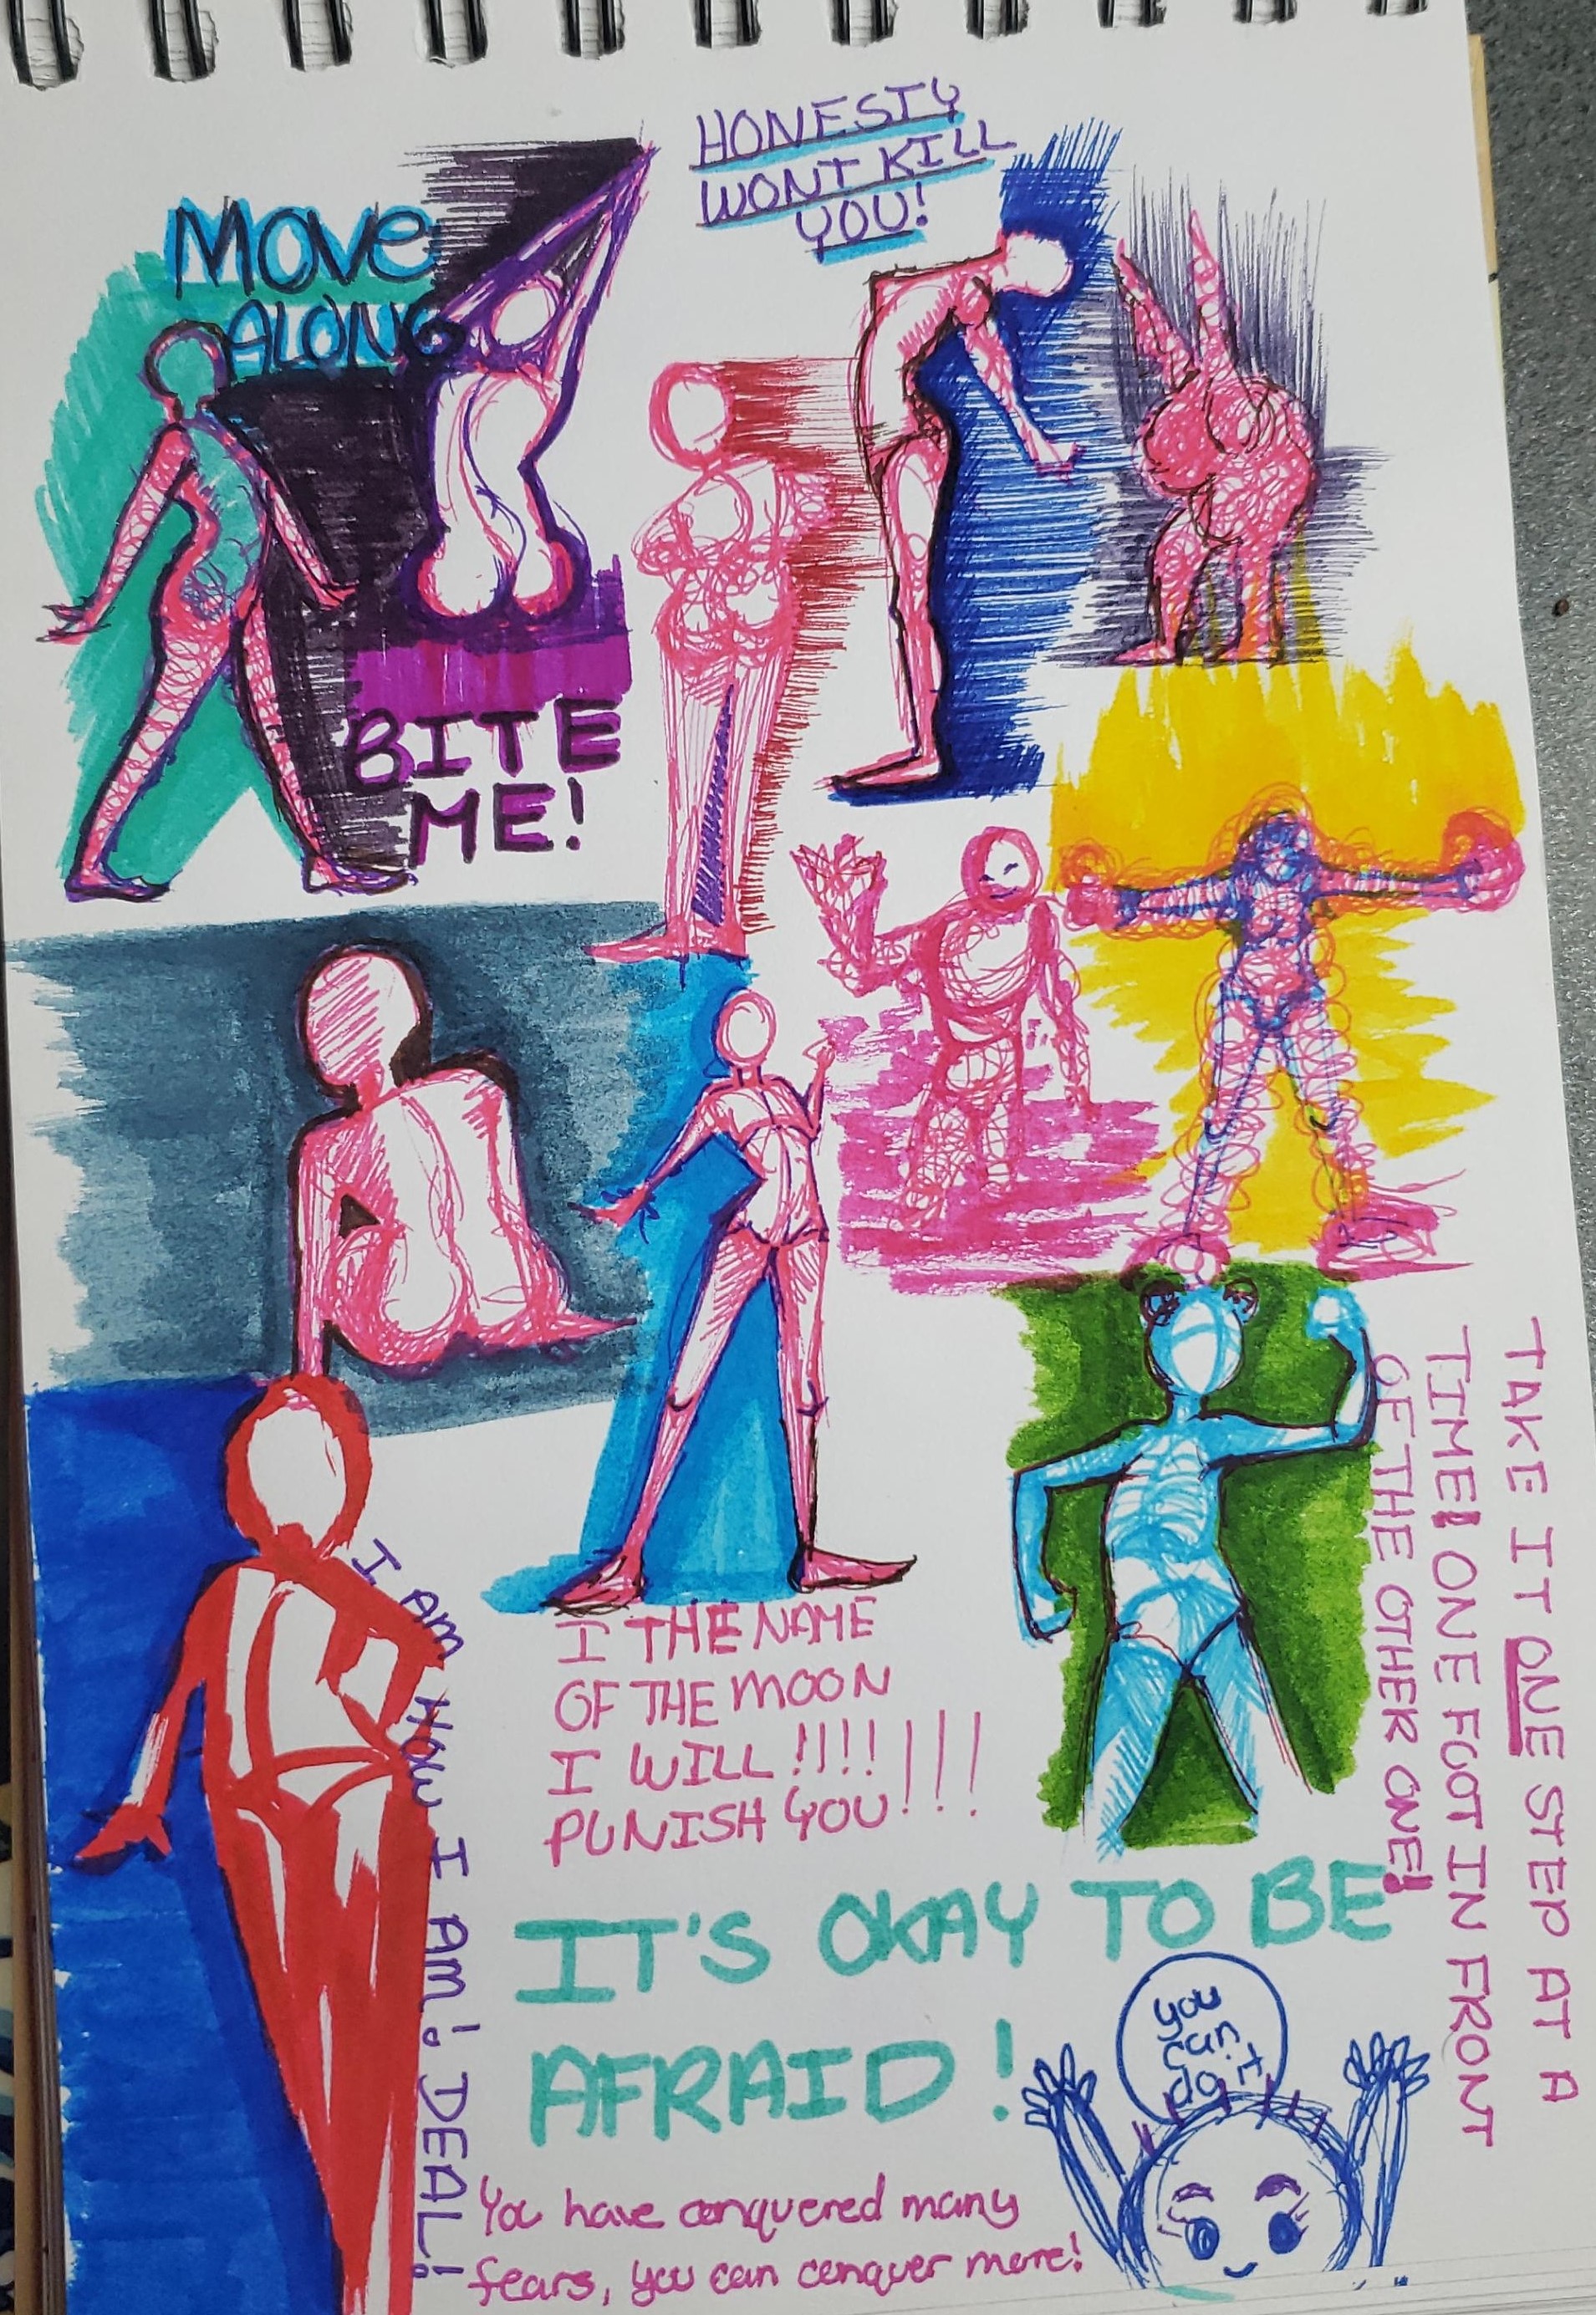 HONESTY
WONT KILL
YOU!
MOVE
ALONG
BITE
ME!
TAKE IT ONE STEP AT A
TIME! ONE FOOT IN FRONT
OF THE OTHER ONE!
I AM HOW I AM! DEAL!
I THE NAME
OF THE MOON
I WILL!!!!!!!
PUNISH YOU
IT'S OKAY TO BE
AFRAID!
you
can
do it
You have conquered many
fears, you can conquer more!